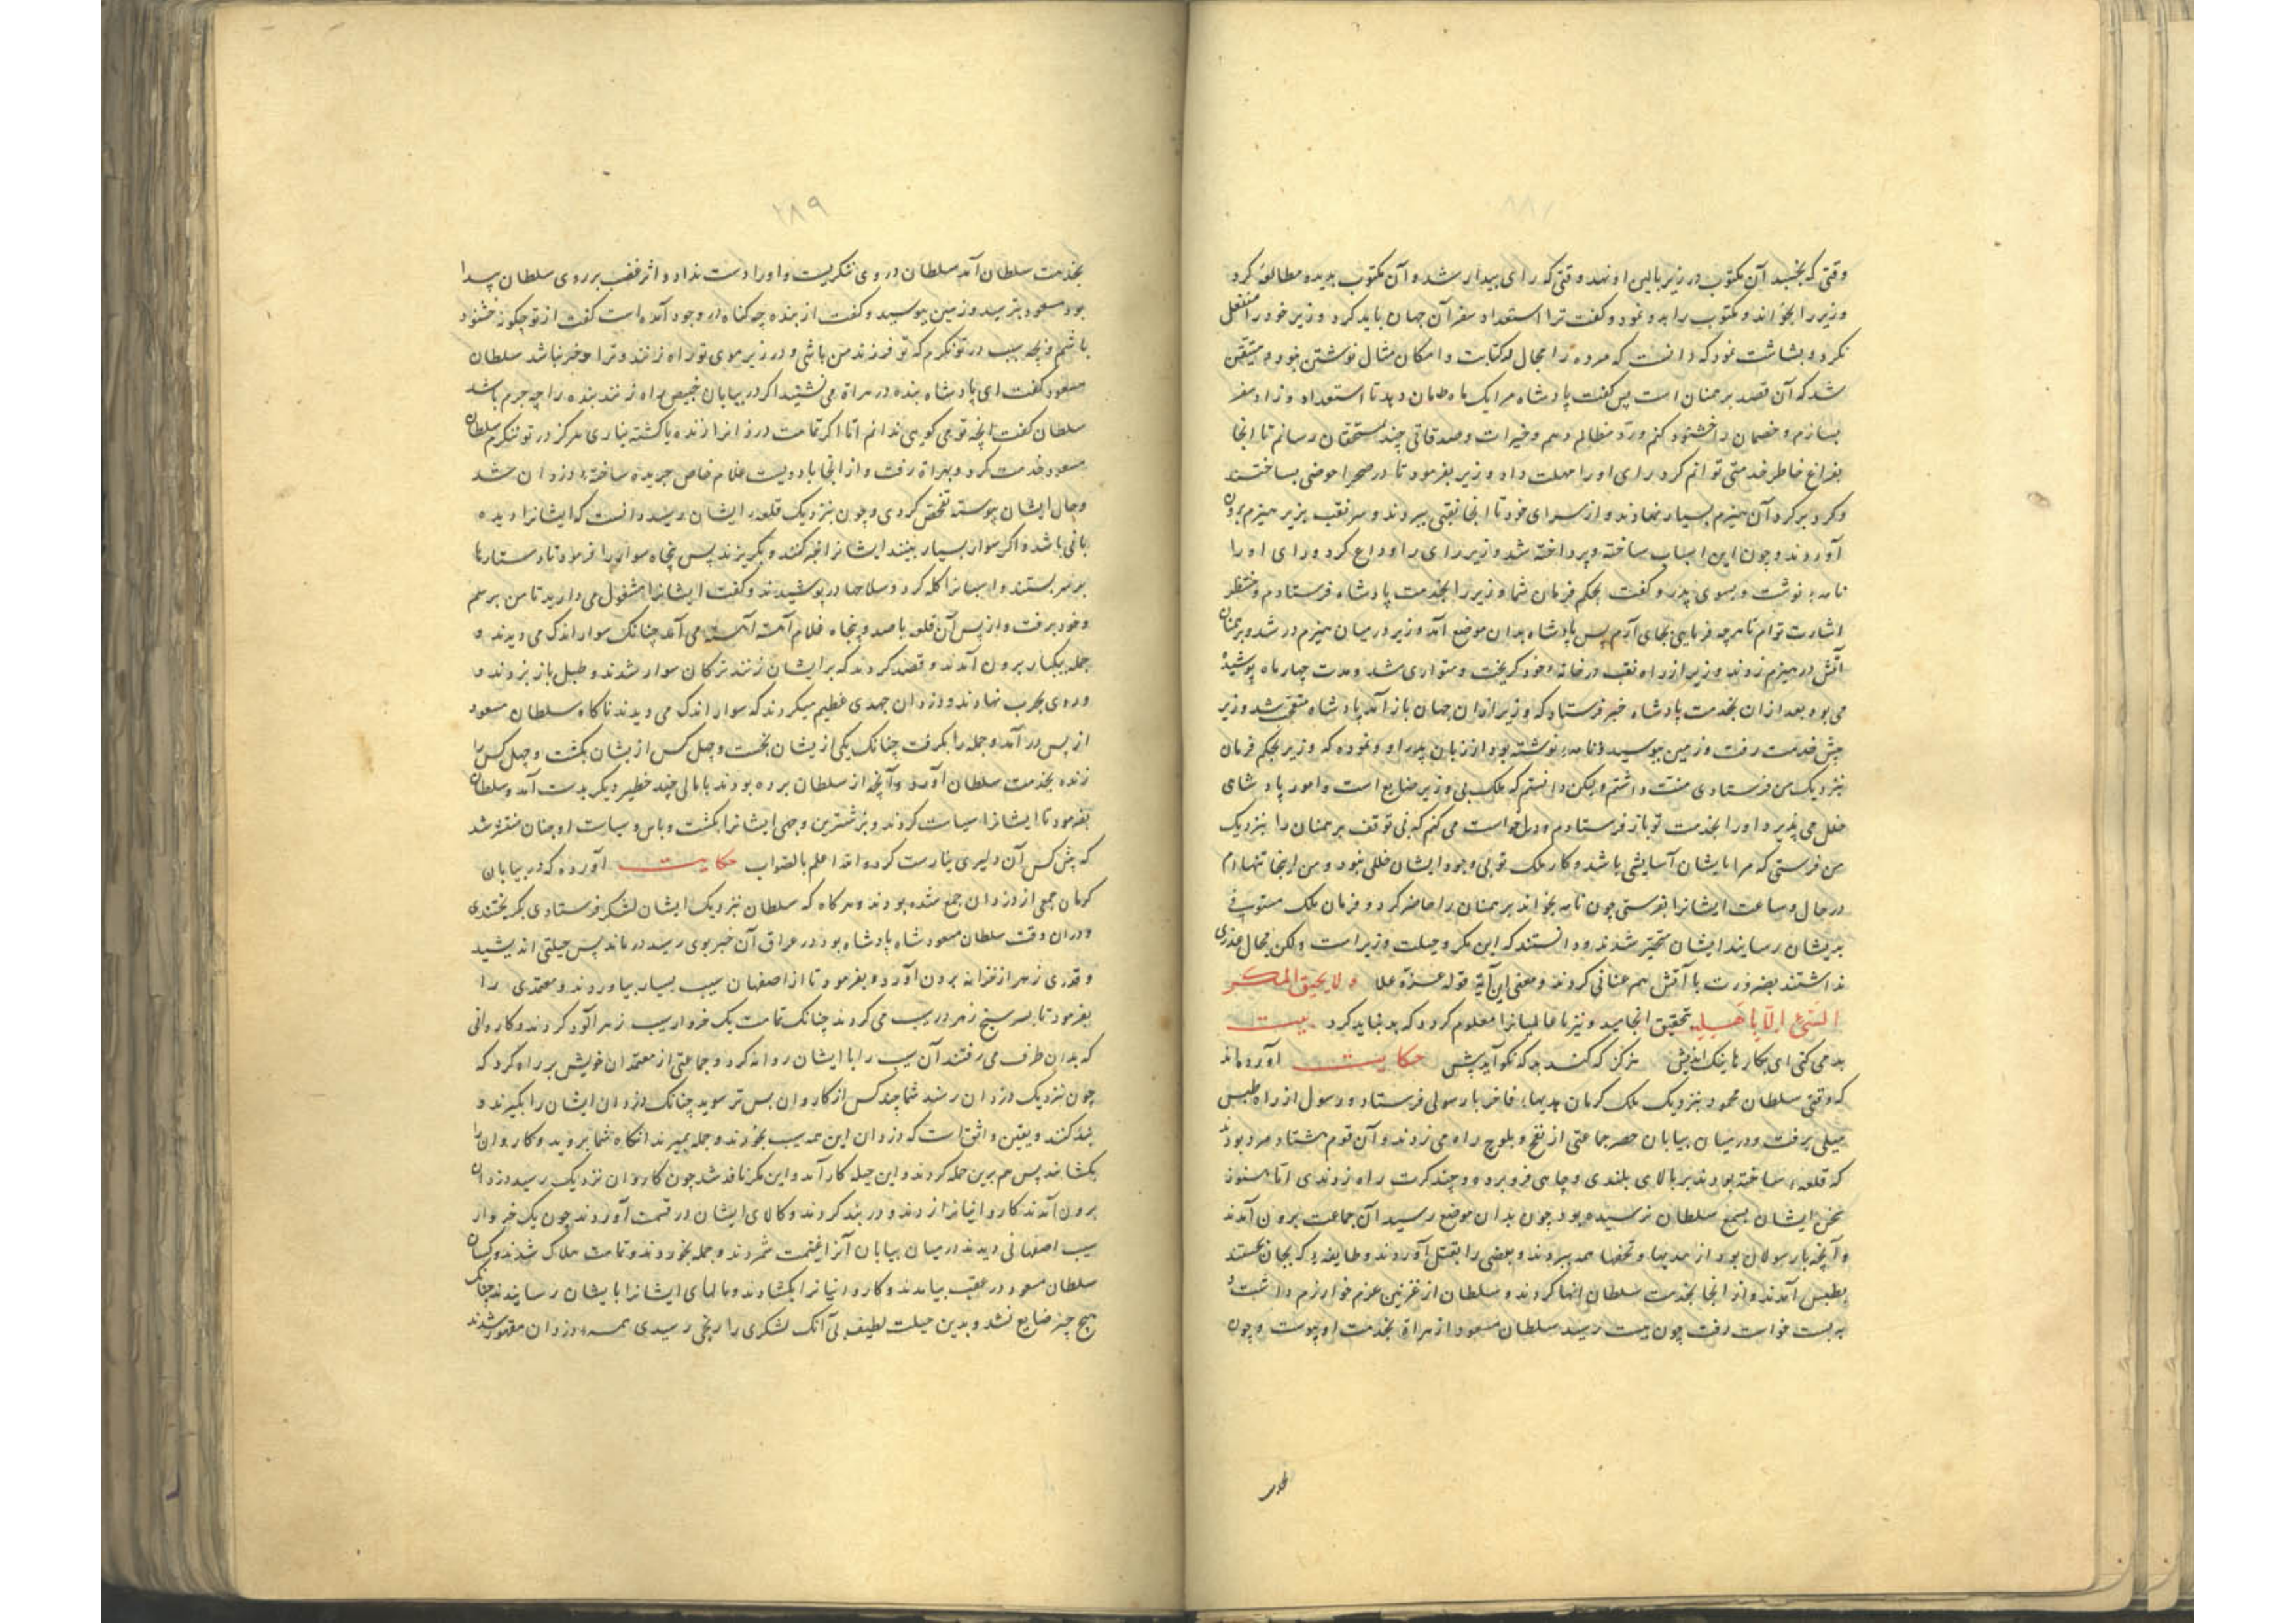 وقتی که بخسبد آن مکتوب در زیر بالین او نهد وقتی که رای بیدار شد و آن مکتوب بدید و مطالعه کرد
وزیر را بخواند و مکتوب را بدو نمود و گفت ترا استعداد سفر آن جهان باید کرد وزیر خود را منفعل
نکرد و بشاشت نمود که دانست که مرده را مجال کتابت و امکان مثال نوشتن نبود و متیقن
شد که آن قصد برهمنان است پس گفت پادشاه مرا یک ماه امان دهد تا استعداد و زاد سفر
بسازم و خصمان را خشنود کنم و رد مظالم دهم و خیرات و صدقاتی چند بمستحقان رسانم تا آنجا
بفراغ خاطر خدمتی توانم کرد رای او را مهلت داد وزیر بفرمود تا در صحرا حوضی بساختند
و گرد بر گرد آن هیزم بسیار نهادند و از سرای خود تا آنجا نقبی ببریدند و سر نقب بزیر هیزم برون
آوردند و چون این اسباب ساخته و پرداخته شد وزیر رای را وداع کرد و رای او را
نامه نوشت و بسوی پدر و گفت بحکم فرمان شما وزیر را بخدمت پادشاه فرستادم و منتظر
اشارت توام تا هرچه فرمایی بجای آرم پس پادشاه بدان موضع آمد وزیر در میان هیزم در شد و برهمنان
آتش در هیزم زدند وزیر از راه نقب در خانه خود گریخت و متواری شد و مدت چهار ماه پوشیده
می بود بعد از آن بخدمت پادشاه خبر فرستاد که وزیر از آن جهان باز آمد پادشاه متعجب شد وزیر
پیش خدمت رفت و زمین ببوسید و نامه نوشته بود از زبان پدر او و نموده که وزیر بحکم فرمان
نزدیک من فرستادی منت داشتم ولیکن دانستم که ملک بی وزیر ضایع است و امور پادشاهی
خلل می پذیرد او را بخدمت تو باز فرستادم و درخواست می کنم که بی توقف برهمنان را بنزدیک
من فرستی که مرا بایشان آسایشی باشد و کار ملک تو بی وجود ایشان خللی نبود و من اینجا تنها ام
در حال و ساعت ایشانرا بفرستی چون نامه بخواند برهمنان را حاضر کرد و فرمان ملک
بدیشان رسانید ایشان متحیر شدند و دانستند که این مکر و حیلت وزیر است ولکن مجال عذری
نداشتند بضرورت با آتش هم عنانی کردند و معنی این آیه قوله عز و علا ولا یحیق المکر
السیئ الا باهله تحقیق انجامید و نیز تا عالمیانرا معلوم گردد که بد نباید کرد بیت
بد می کنی ای بکارها نیک اندیش هرگز که کند بد که نکو آید پیش حکایت آورده اند
که وقتی سلطان محمود بنزدیک ملک کرمان هدیهاء فاخر با رسولی فرستاد و رسول از راه طبس
میلی برفت و در میان بیابان جماعتی از قفص و بلوچ راه می زدند و آن قوم هشتاد مرد بودند
که قلعه ساخته بودند بر بالای بلندی و چاهی فرو برده و چند کرت راه زدندی اما هنوز
سخن ایشان بسمع سلطان نرسیده بود چون بدان موضع رسید آن جماعت برون آمدند
و آنچه با رسولان بود از هدیها و تحفها همه ببردند و بعضی را بقتل آوردند و طایفه که بجان جستند
بطبس آمدند و از آنجا بخدمت سلطان انها کردند و سلطان از غزنین عزم خوارزم داشت و
ببست خواست رفت چون ببست رسید سلطان مسعود از هراة بخدمت او پیوست و چون
۲۸۹
بخدمت سلطان آمد سلطان در وی ننگریست و او را دست نداد و اثر غضب بر روی سلطان پیدا
بود مسعود بترسید و زمین ببوسید و گفت از بنده چه گناه در وجود آمده است گفت از تو چگونه خشنود
باشم و بچه سبب در تو نگرم که تو فرزند من باشی و در زیر موی تو راه زنند و ترا خبر نباشد سلطان
مسعود گفت ای پادشاه بنده در هراة می نشیند اگر در بیابان خبیص راه زنند بنده را چه جرم باشد
سلطان گفت آنچه تو می گویی ندانم اما اگر تمامت دزدانرا زنده یا کشته نیاری هرگز در تو ننگرم سلطان
مسعود خدمت کرد و بهراة رفت و از آنجا با دویست غلام خاص جریده ساخته دزدان شد
و حال ایشان پیوسته تفحص کردی و چون نزدیک قلعه ایشان رسید دانست که ایشانرا دیده
بانی باشد و اگر سوار بسیار بینند ایشانرا خبر کنند و بگریزند پس پنجاه سوار را فرمود تا دستارها
بر سر بستند و اسبانرا گله کرد و سلاحها در پوشیدند و گفت ایشانرا مشغول می دارید تا من برسم
و خود برفت و از پس آن قلعه با صد و پنجاه غلام آهسته آهسته می آمد چنانک سوار اندک می دیدند و
جمله بیکبار برون آمدند و قصد کردند که بر ایشان زنند ترکان سوار شدند و طبل باز بزدند و
و روی بحرب نهادند و دزدان جهدی عظیم میکردند که سوار اندک می دیدند ناگاه سلطان مسعود
از پس در آمد و جمله را بگرفت چنانک یکی از یشان نجست و چهل کس از یشان بکشت و چهل کس را
زنده بخدمت سلطان آورد و آنچه از سلطان برده بودند با مالی چند خطیر دیگر بدست آمد و سلطان
بفرمود تا ایشانرا سیاست کردند و بزشترین وجهی ایشانرا بکشت و باس و سیاست او چنان منتشر شد
که پیش کس آن دلیری نیارست کرد و الله اعلم بالصواب حکایت آورده که در بیابان
کرمان جمعی از دزدان جمع شده بودند و هر گاه که سلطان نزدیک ایشان لشکر فرستادی بگریختندی
و در آن وقت سلطان مسعود شاه پادشاه بود در عراق آن خبر بوی رسید در ماند پس حیلتی اندیشید
و قدری زهر از خزانه برون آورد و بفرمود تا از اصفهان سیب بسیار بیاوردند و معتمدی را
بفرمود تا بسر سیخ زهر در سیب می کردند چنانک تمامت یک خروار سیب زهر آلود کردند و کاروانی
که بدان طرف می رفتند آن سیب را با ایشان روانه کرد و جماعتی از معتمدان خویش بر راه کرد که
چون نزدیک دزدان رسند شما چند کس از کاروان پس تر شوید چنانک دزدان ایشان را بگیرند و
بند کنند و یقین واثق است که دزدان این همه سیب بخورند و جمله بمیرند آنگاه شما بروید و کاروان را
بگشایید پس هم برین جمله کردند و این حیله کار آمد و این مکر نافذ شد چون کاروان نزدیک رسید دزدان
برون آمدند کاروانیانرا زدند و در بند کردند و کالای ایشان در قسمت آوردند چون یک خروار
سیب اصفهانی دیدند در میان بیابان آنرا غنیمت شمردند و جمله بخوردند و تمامت هلاک شدند و کسان
سلطان مسعود در عقب بیامدند و کاروانیانرا بگشادند و مالهای ایشانرا بایشان رسانیدند چنانک
هیچ چیز ضایع نشد و بدین حیلت لطیف بی آنک لشکری را رنجی رسیدی همه دزدان مقهور شدند